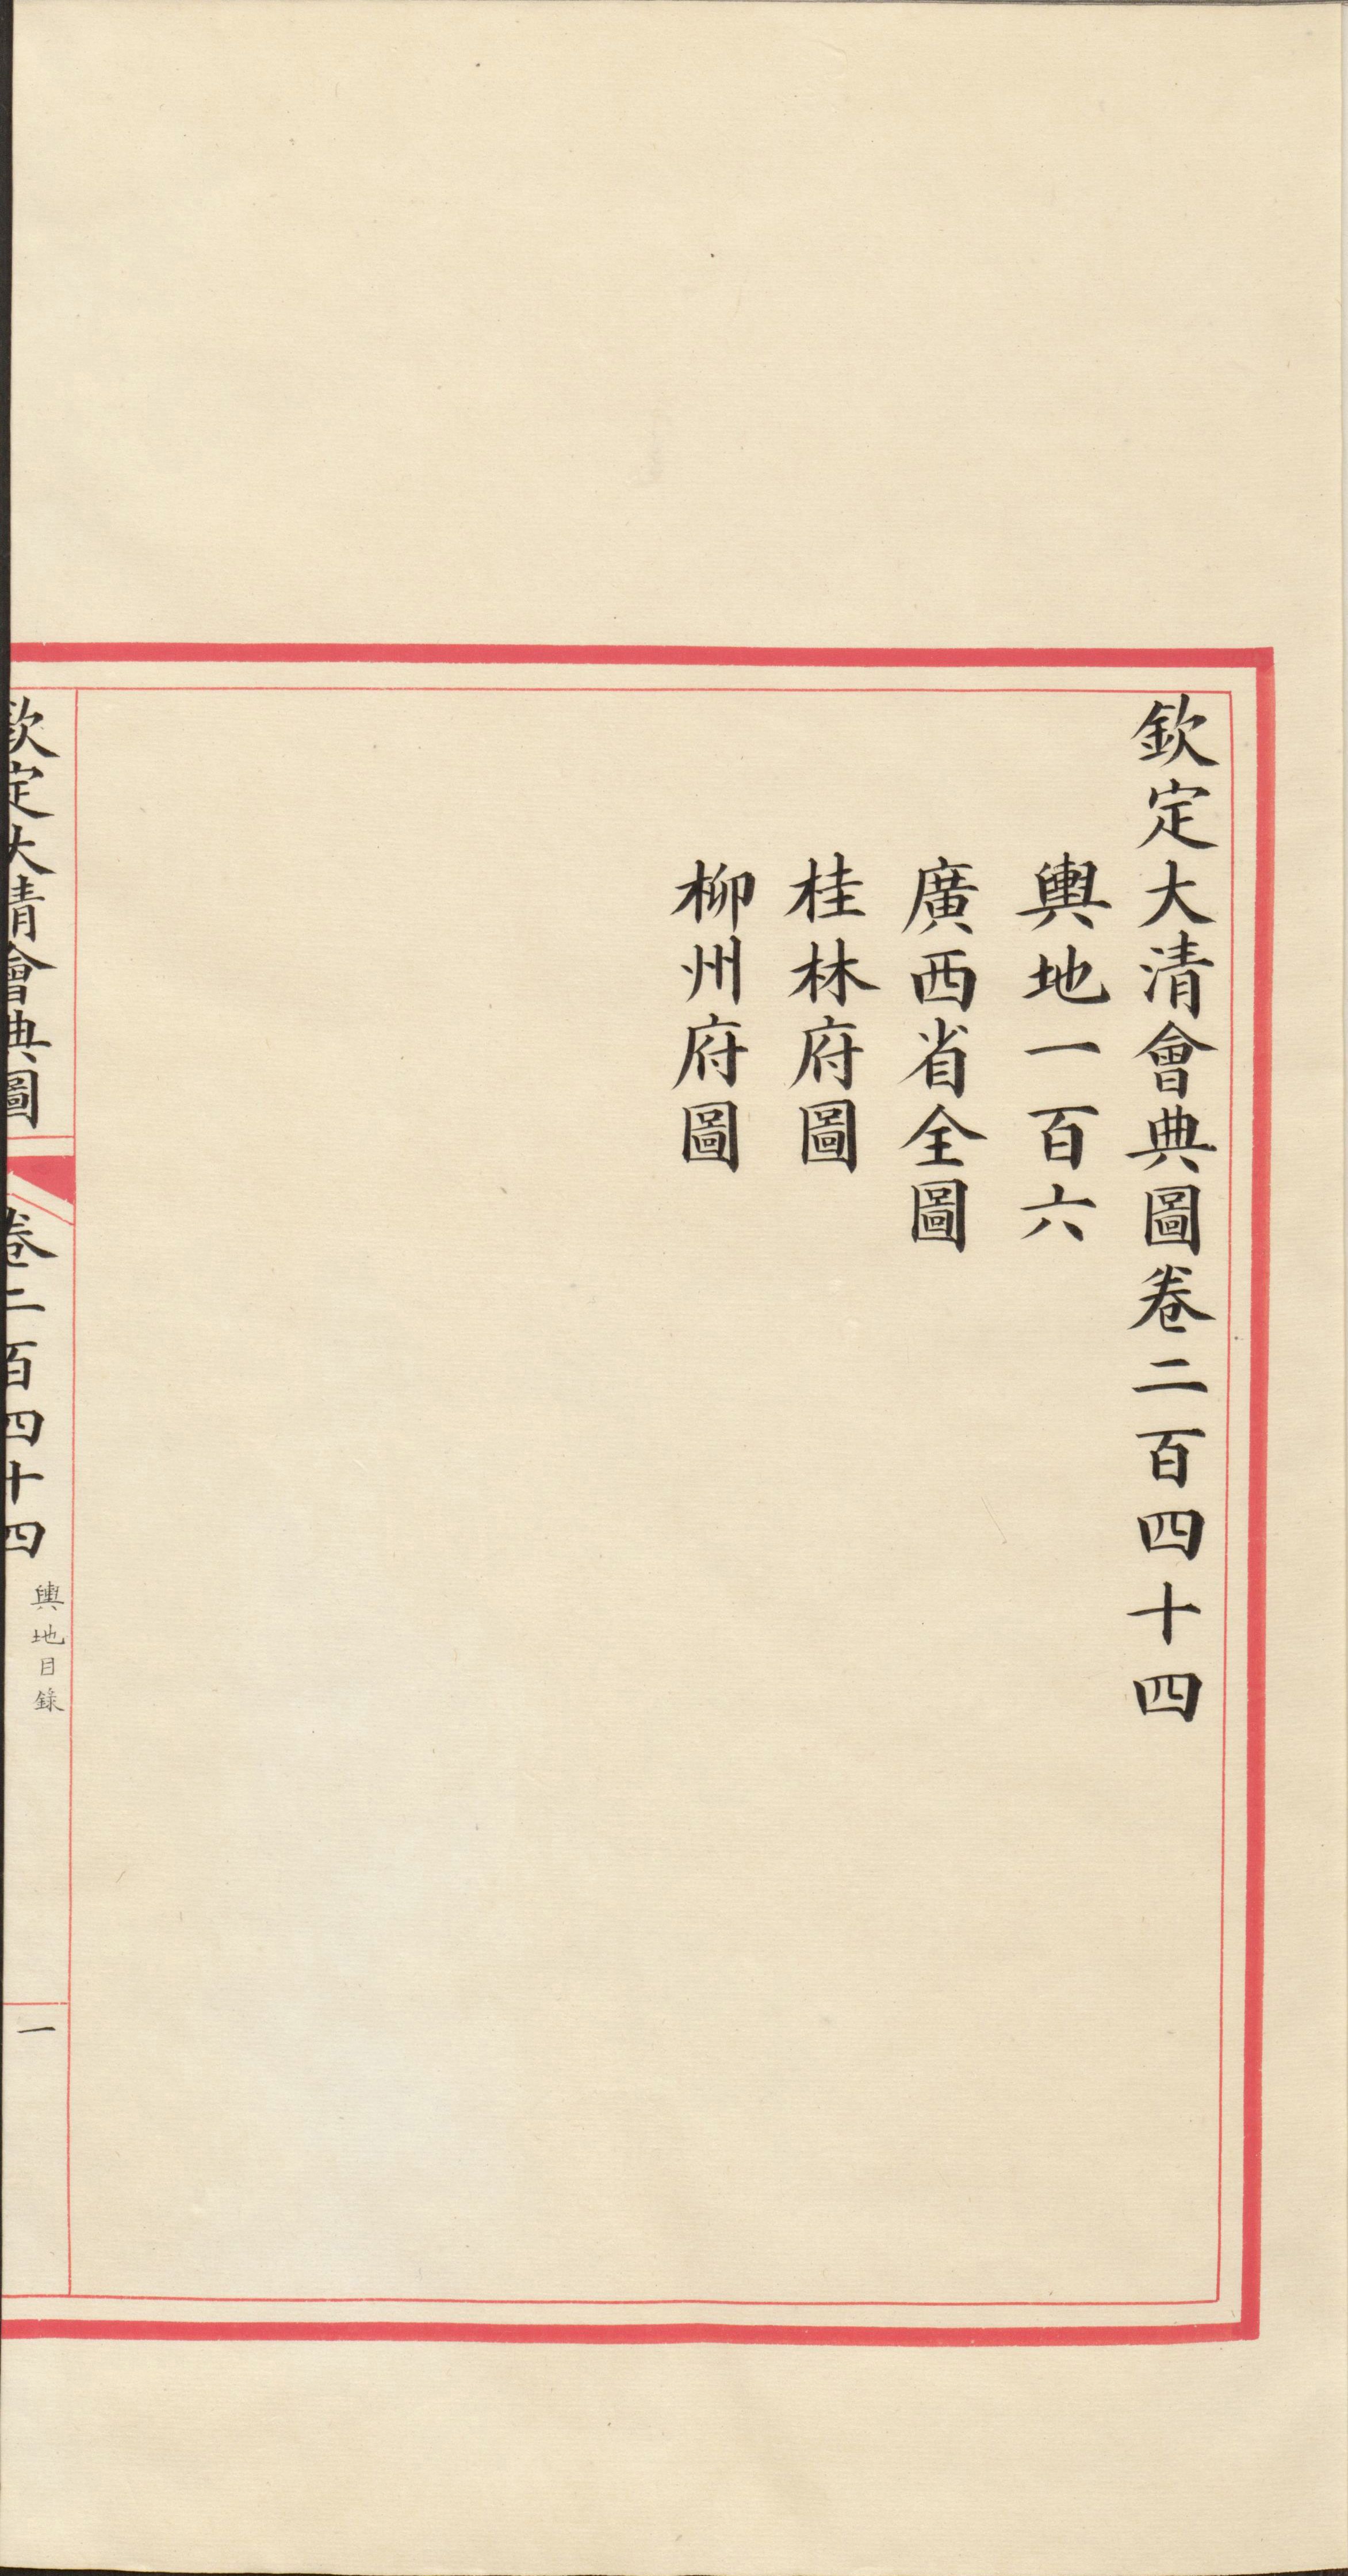 欽定大清會典圖卷二百四十四
輿地一百六
廣西省全圖
桂林府圖
柳州府圖
欽定大清會典圖
卷二百四十四
輿地目錄
一